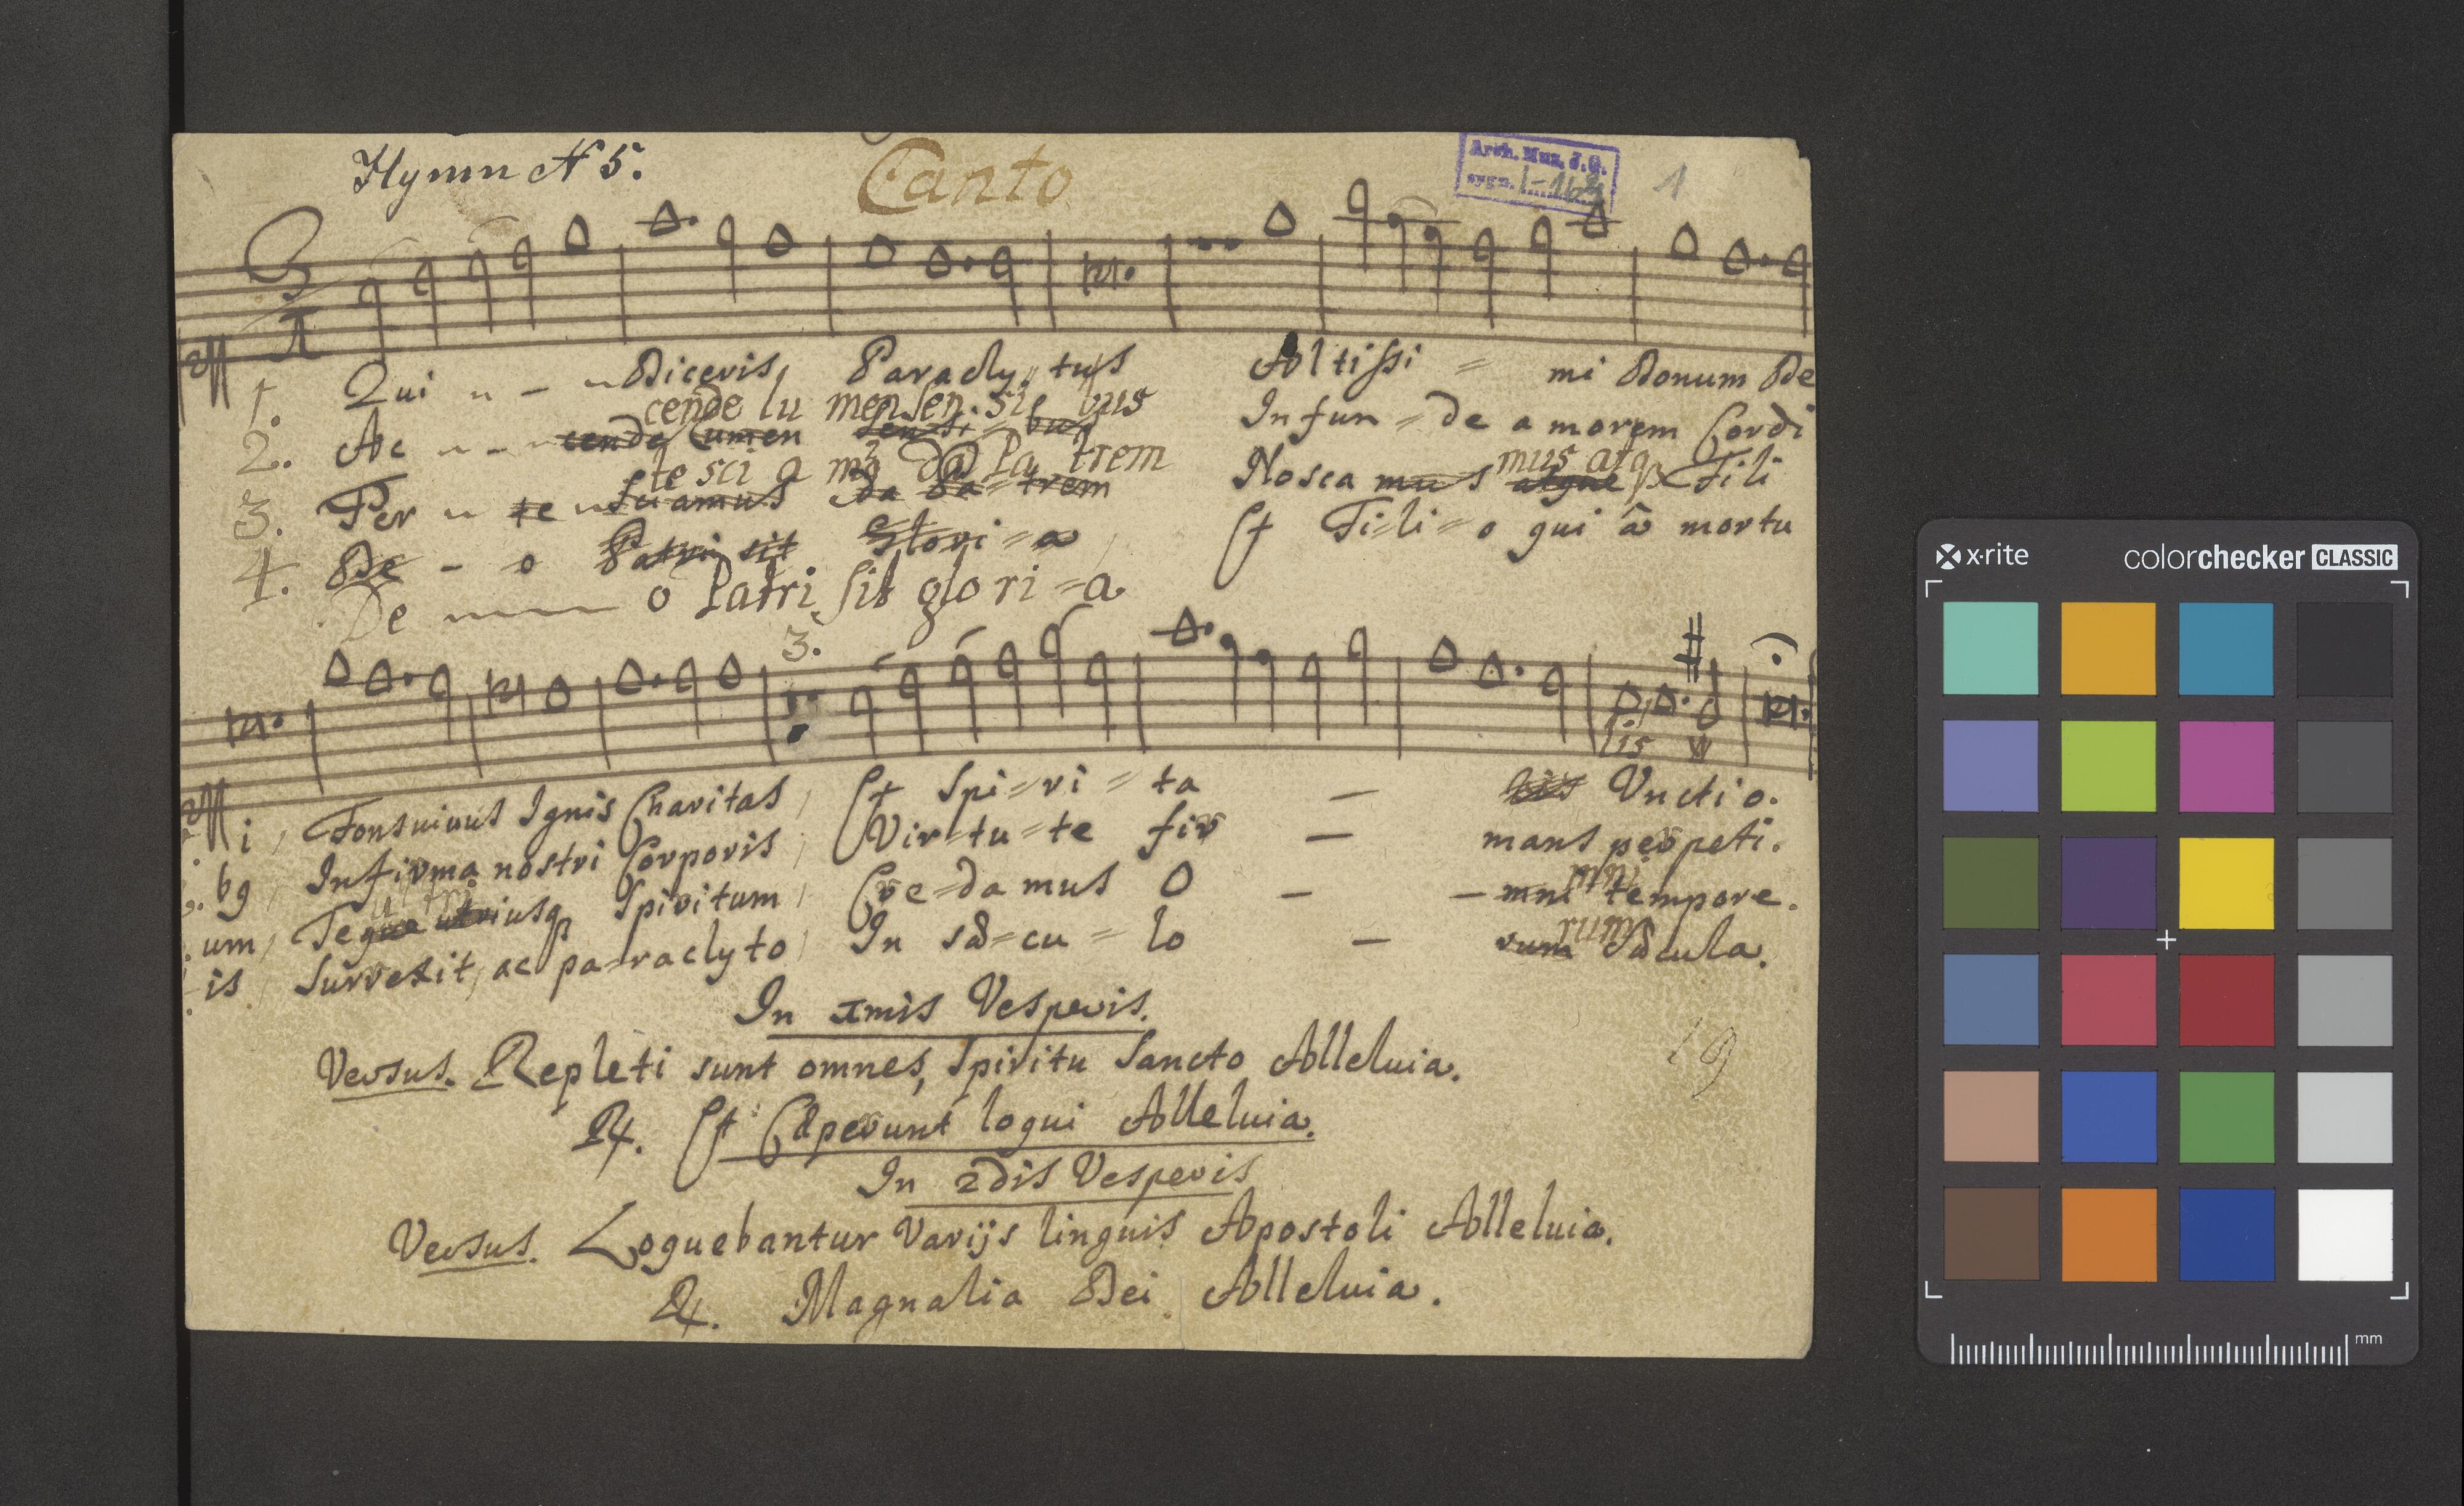 Hymn N 5.
Canto
Arch. Muz. J.G.
sygn.
1
1. Qui - - Diceris, Paraclytus Altissi = mi Donum De
cende lu men sen.si bus
2. Ac - - cende Lumen sensi = bus Infun = de amorem Cordi
te sci a mus da Pa trem
mus atq
3. Per te Sciamus da Pa = trem Nosca mus atque Fili
4. De - o Patri sit Glori = a Et Fi=li=o qui â mortu
De o Patri sit glo ri = a.
3.
lis
i, Fons vivus Ignis Charitas, Et Spi=ri=ta - Unctio.
bg, Infirma nostri Corporis, Virtu=te fir - mans perpeti.
mni
um, Teque utriusq Spiritum, Cre=da mus O - - mni tempore.
rum
is, Surrexit, ac pa=raclyto, In sæ=cu=lo - rum Sæcula.
In 1mis Vesperis.
Versus. Repleti sunt omnes, Spiritu Sancto Alleluia.
19
R. Et Cæperunt loqui Alleluia.
In 2dis Vesperis
Versus. Loquebantur Varijs linguis Apostoli Alleluia.
R. Magnalia Dei Alleluia.
x·rite
colorchecker CLASSIC
mm